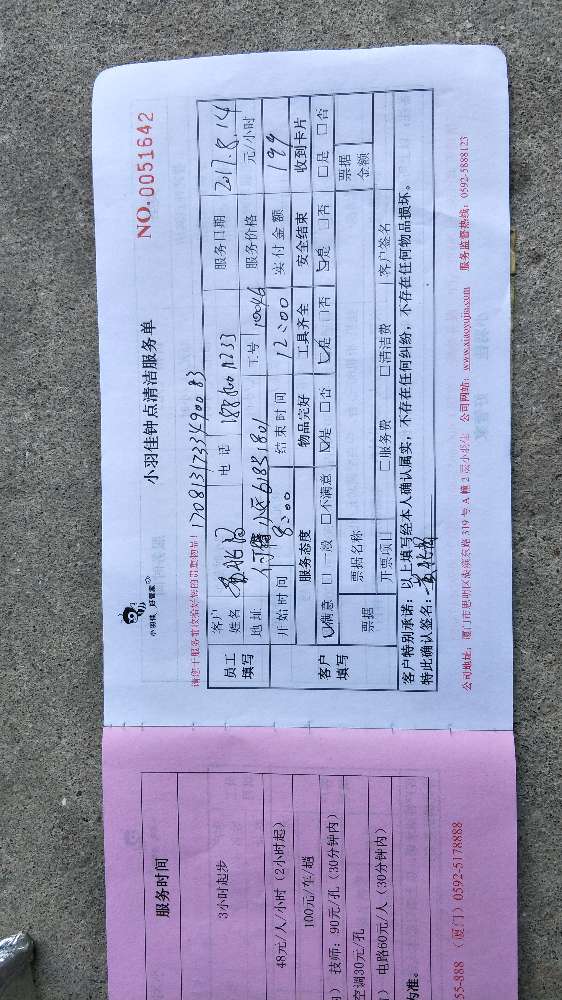 小羽佳 好管家
小羽佳钟点清洁服务单
NO.0051642
请您于服务前收拾好您的贵重物品!
17081317233490083
员工填写
客户姓名
电话
服务日期 2017.8.14
地址
工号 10046
服务价格 元/小时
开始时间 8:00
结束时间 12:00
实付金额 199
客户填写
服务态度
物品完好
工具齐全
安全结束
收到卡片
☑满意 □一般 □不满意
☑是 □否
☑是 □否
☑是 □否
□是 □否
票据
票据名称
票据金额
开票项目
□服务费 □清洁费
客户签名
客户特别承诺:以上填写经本人确认属实,不存在任何纠纷,不存在任何物品损坏。
特此确认签名:
公司地址:厦门市思明区 319号A幢2 公司网站:www.xiaoyujia.com 服务监督热线:0592-5888123
服务时间
3小时起步
48元/人/小时(2小时起)
100元/车/趟
技师:90元/孔(30分钟内)
空调30元/孔
电路60元/人(30分钟内)
为准。
55-888 (厦门)0592-5178888